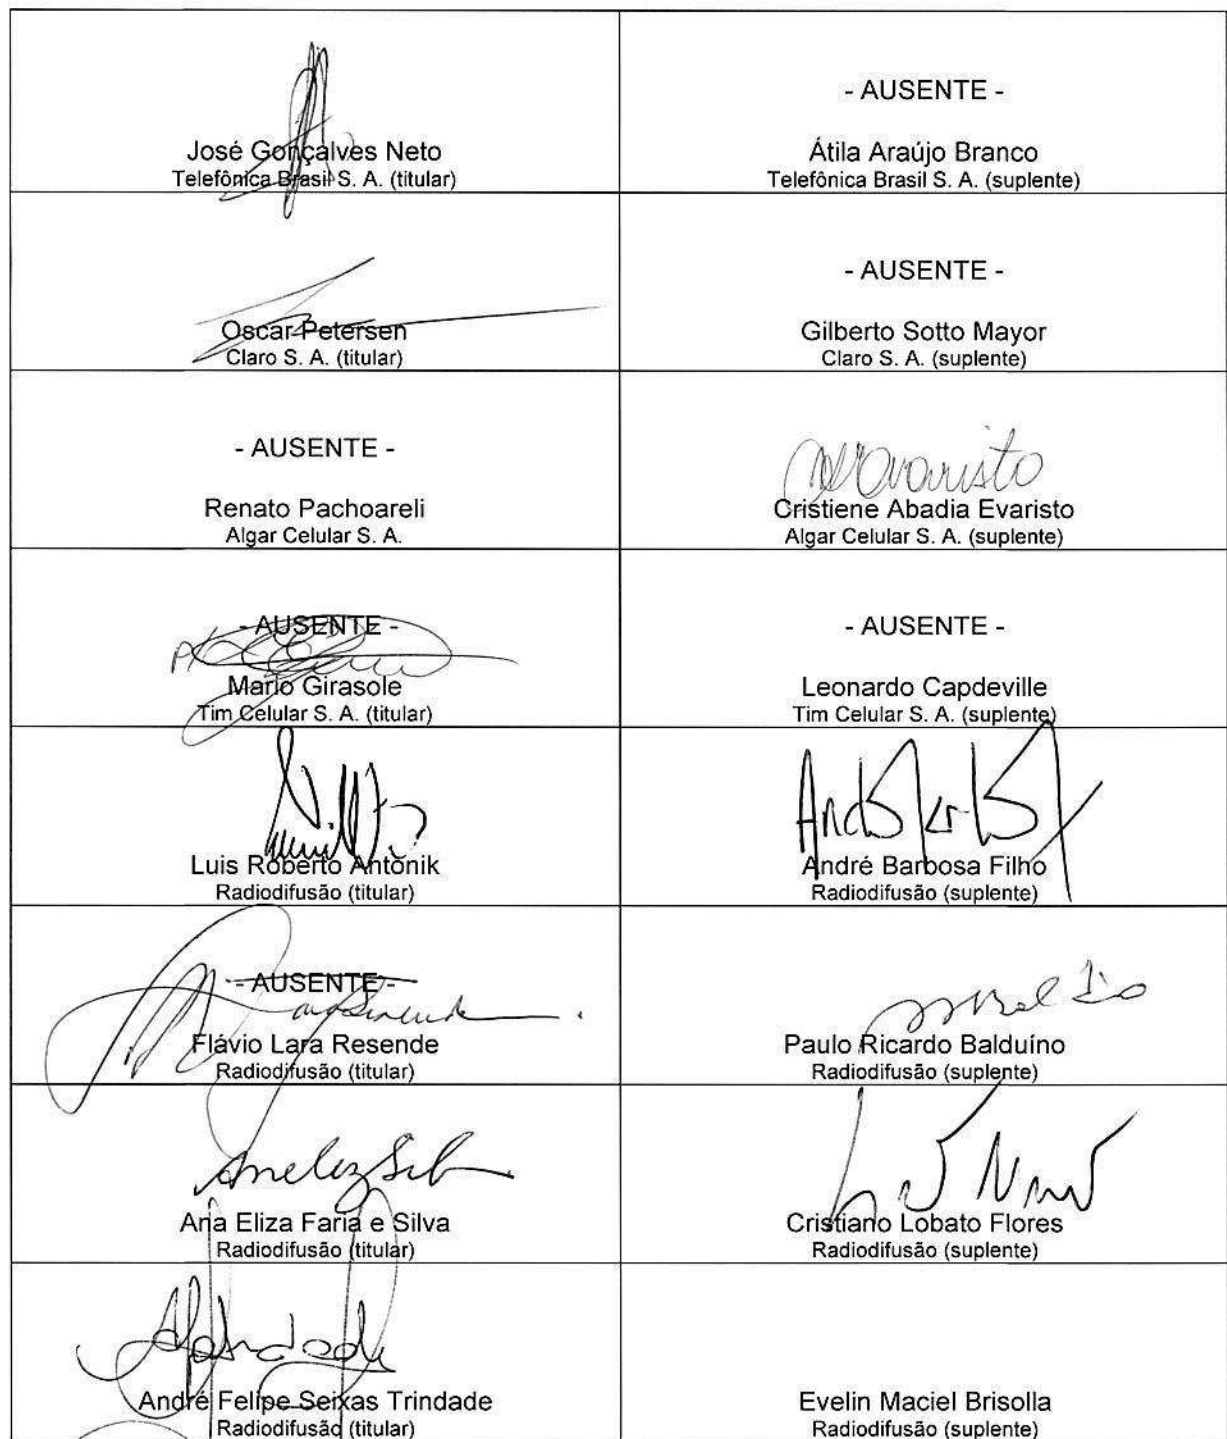 - AUSENTE -
José Gonçalves Neto
Telefônica Brasil S. A. (titular)
Átila Araújo Branco
Telefônica Brasil S. A. (suplente)
- AUSENTE -
Oscar Petersen
Claro S. A. (titular)
Gilberto Sotto Mayor
Claro S. A. (suplente)
- AUSENTE -
Renato Pachoareli
Algar Celular S. A.
Evaristo
Cristiene Abadia Evaristo
Algar Celular S. A. (suplente)
- AUSENTE -
Mario Girasole
Tim Celular S. A. (titular)
- AUSENTE -
Leonardo Capdeville
Tim Celular S. A. (suplente)
Luis Roberto Antonik
Radiodifusão (titular)
André Barbosa Filho
Radiodifusão (suplente)
- AUSENTE -
Flávio Lara Resende
Radiodifusão (titular)
Paulo Ricardo Balduíno
Radiodifusão (suplente)
Ana Eliza Faria e Silva
Radiodifusão (titular)
Cristiano Lobato Flores
Radiodifusão (suplente)
André Felipe Seixas Trindade
Radiodifusão (titular)
Evelin Maciel Brisolla
Radiodifusão (suplente)